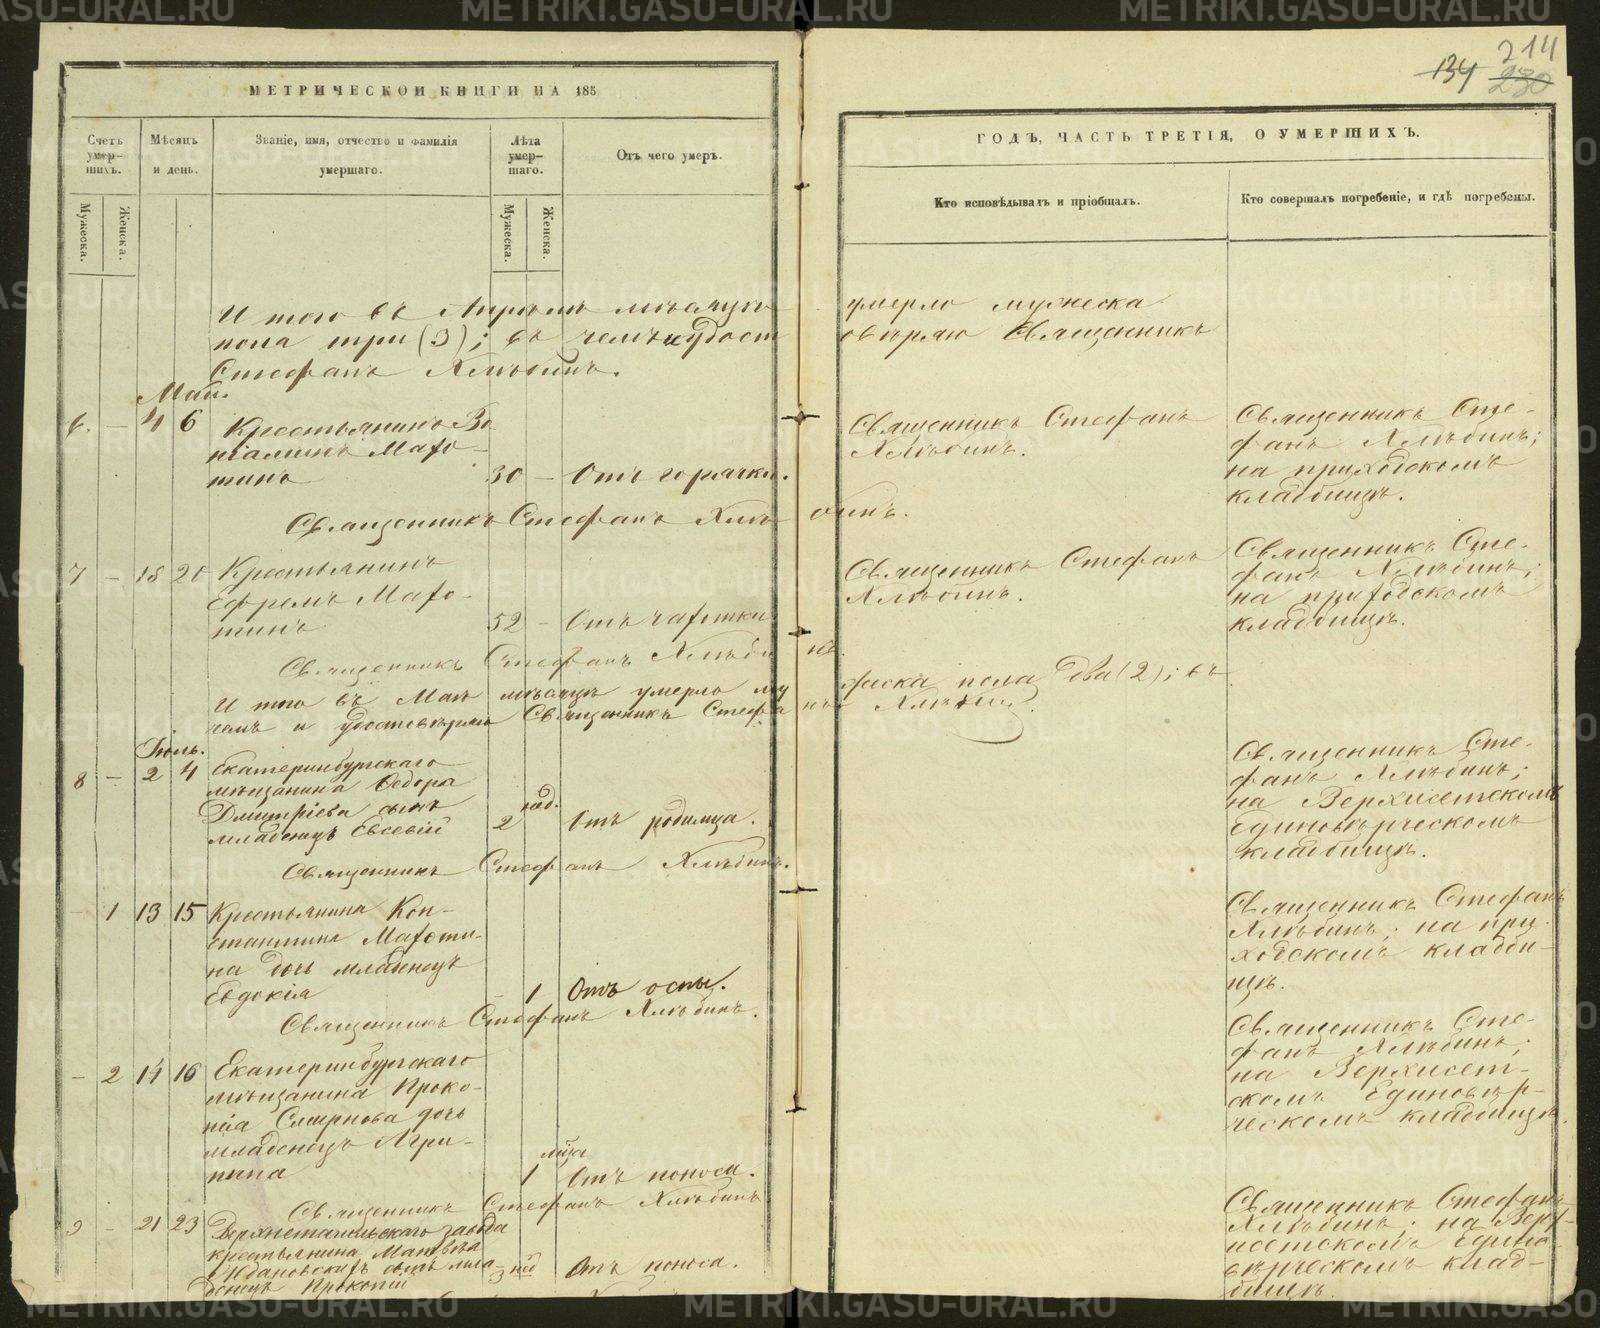 214
134 230
МЕТРИЧЕСКОЙ КНИГИ НА 185
ГОДЪ, ЧАСТЬ ТРЕТІЯ, О УМЕРШИХЪ.
Счетъ умер-шихъ.
Мужеска.
Женска.
Мѣсяцъ и день.
Званіе, имя, отчество и фамилія умершаго.
Лѣта умер-шаго.
Мужеска.
Женска.
Отъ чего умеръ.
Кто исповѣдывалъ и пріобщалъ.
Кто совершалъ погребеніе, и гдѣ погребены.
И того въ Апрѣлѣ мѣсяцѣ умерло мужеска
пола три (3); въ чемъ и удостовѣряю Священникъ
Стефанъ Хлѣбинъ.
Май.
6. — 4 6 Крестьянинъ Ве
ніаминъ Махо-
тинъ 30 — Отъ горячки.
Священникъ Стефанъ
Хлѣбинъ.
Священникъ Сте-
фанъ Хлѣбинъ;
на приходскомъ
кладбищѣ.
Священникъ Стефанъ Хлѣбинъ.
7 — 18 20 Крестьянинъ
Ефремъ Махо-
тинъ 52 — Отъ чахотки.
Священникъ Стефанъ
Хлѣбинъ.
Священникъ Сте-
фанъ Хлѣбинъ;
на приходскомъ
кладбищѣ.
Священникъ Стефанъ Хлѣбинъ.
И того въ Маѣ мѣсяцѣ умерло мужеска пола два (2); въ
чемъ и удостовѣряю Священникъ Стефанъ Хлѣбинъ.
Іюль.
8 — 2 4 Екатеринбургскаго
мѣщанина Ѳедора
Дмитріева сынъ
младенецъ Евсевій 2 нед. Отъ родимца.
Священникъ Сте-
фанъ Хлѣбинъ;
на Верхисетскомъ
Единовѣрческомъ
кладбищѣ.
Священникъ Стефанъ Хлѣбинъ.
— 1 13 15 Крестьянина Кон-
стантина Махоти-
на дочь младенецъ
Евдокія 1 Отъ оспы.
Священникъ Стефанъ
Хлѣбинъ; на при-
ходскомъ кладби-
щѣ.
Священникъ Стефанъ Хлѣбинъ.
— 2 14 16 Екатеринбургскаго
мѣщанина Проко-
пія Смирнова дочь
младенецъ Агри-
пина 1 Отъ поноса.
Священникъ Сте-
фанъ Хлѣбинъ;
на Верхисет-
скомъ Единовѣр-
ческомъ кладбищѣ
Священникъ Стефанъ Хлѣбинъ
9 — 21 23 Верхнетагильскаго завода
крестьянина Матвѣя
Ждановскихъ сынъ мла-
денецъ Прокопій 3 нед Отъ поноса.
Священникъ Стефанъ
Хлѣбинъ; на Верх-
исетскомъ Едино-
вѣрческомъ клад-
бищѣ.
METRIKI.GASO-URAL.RU